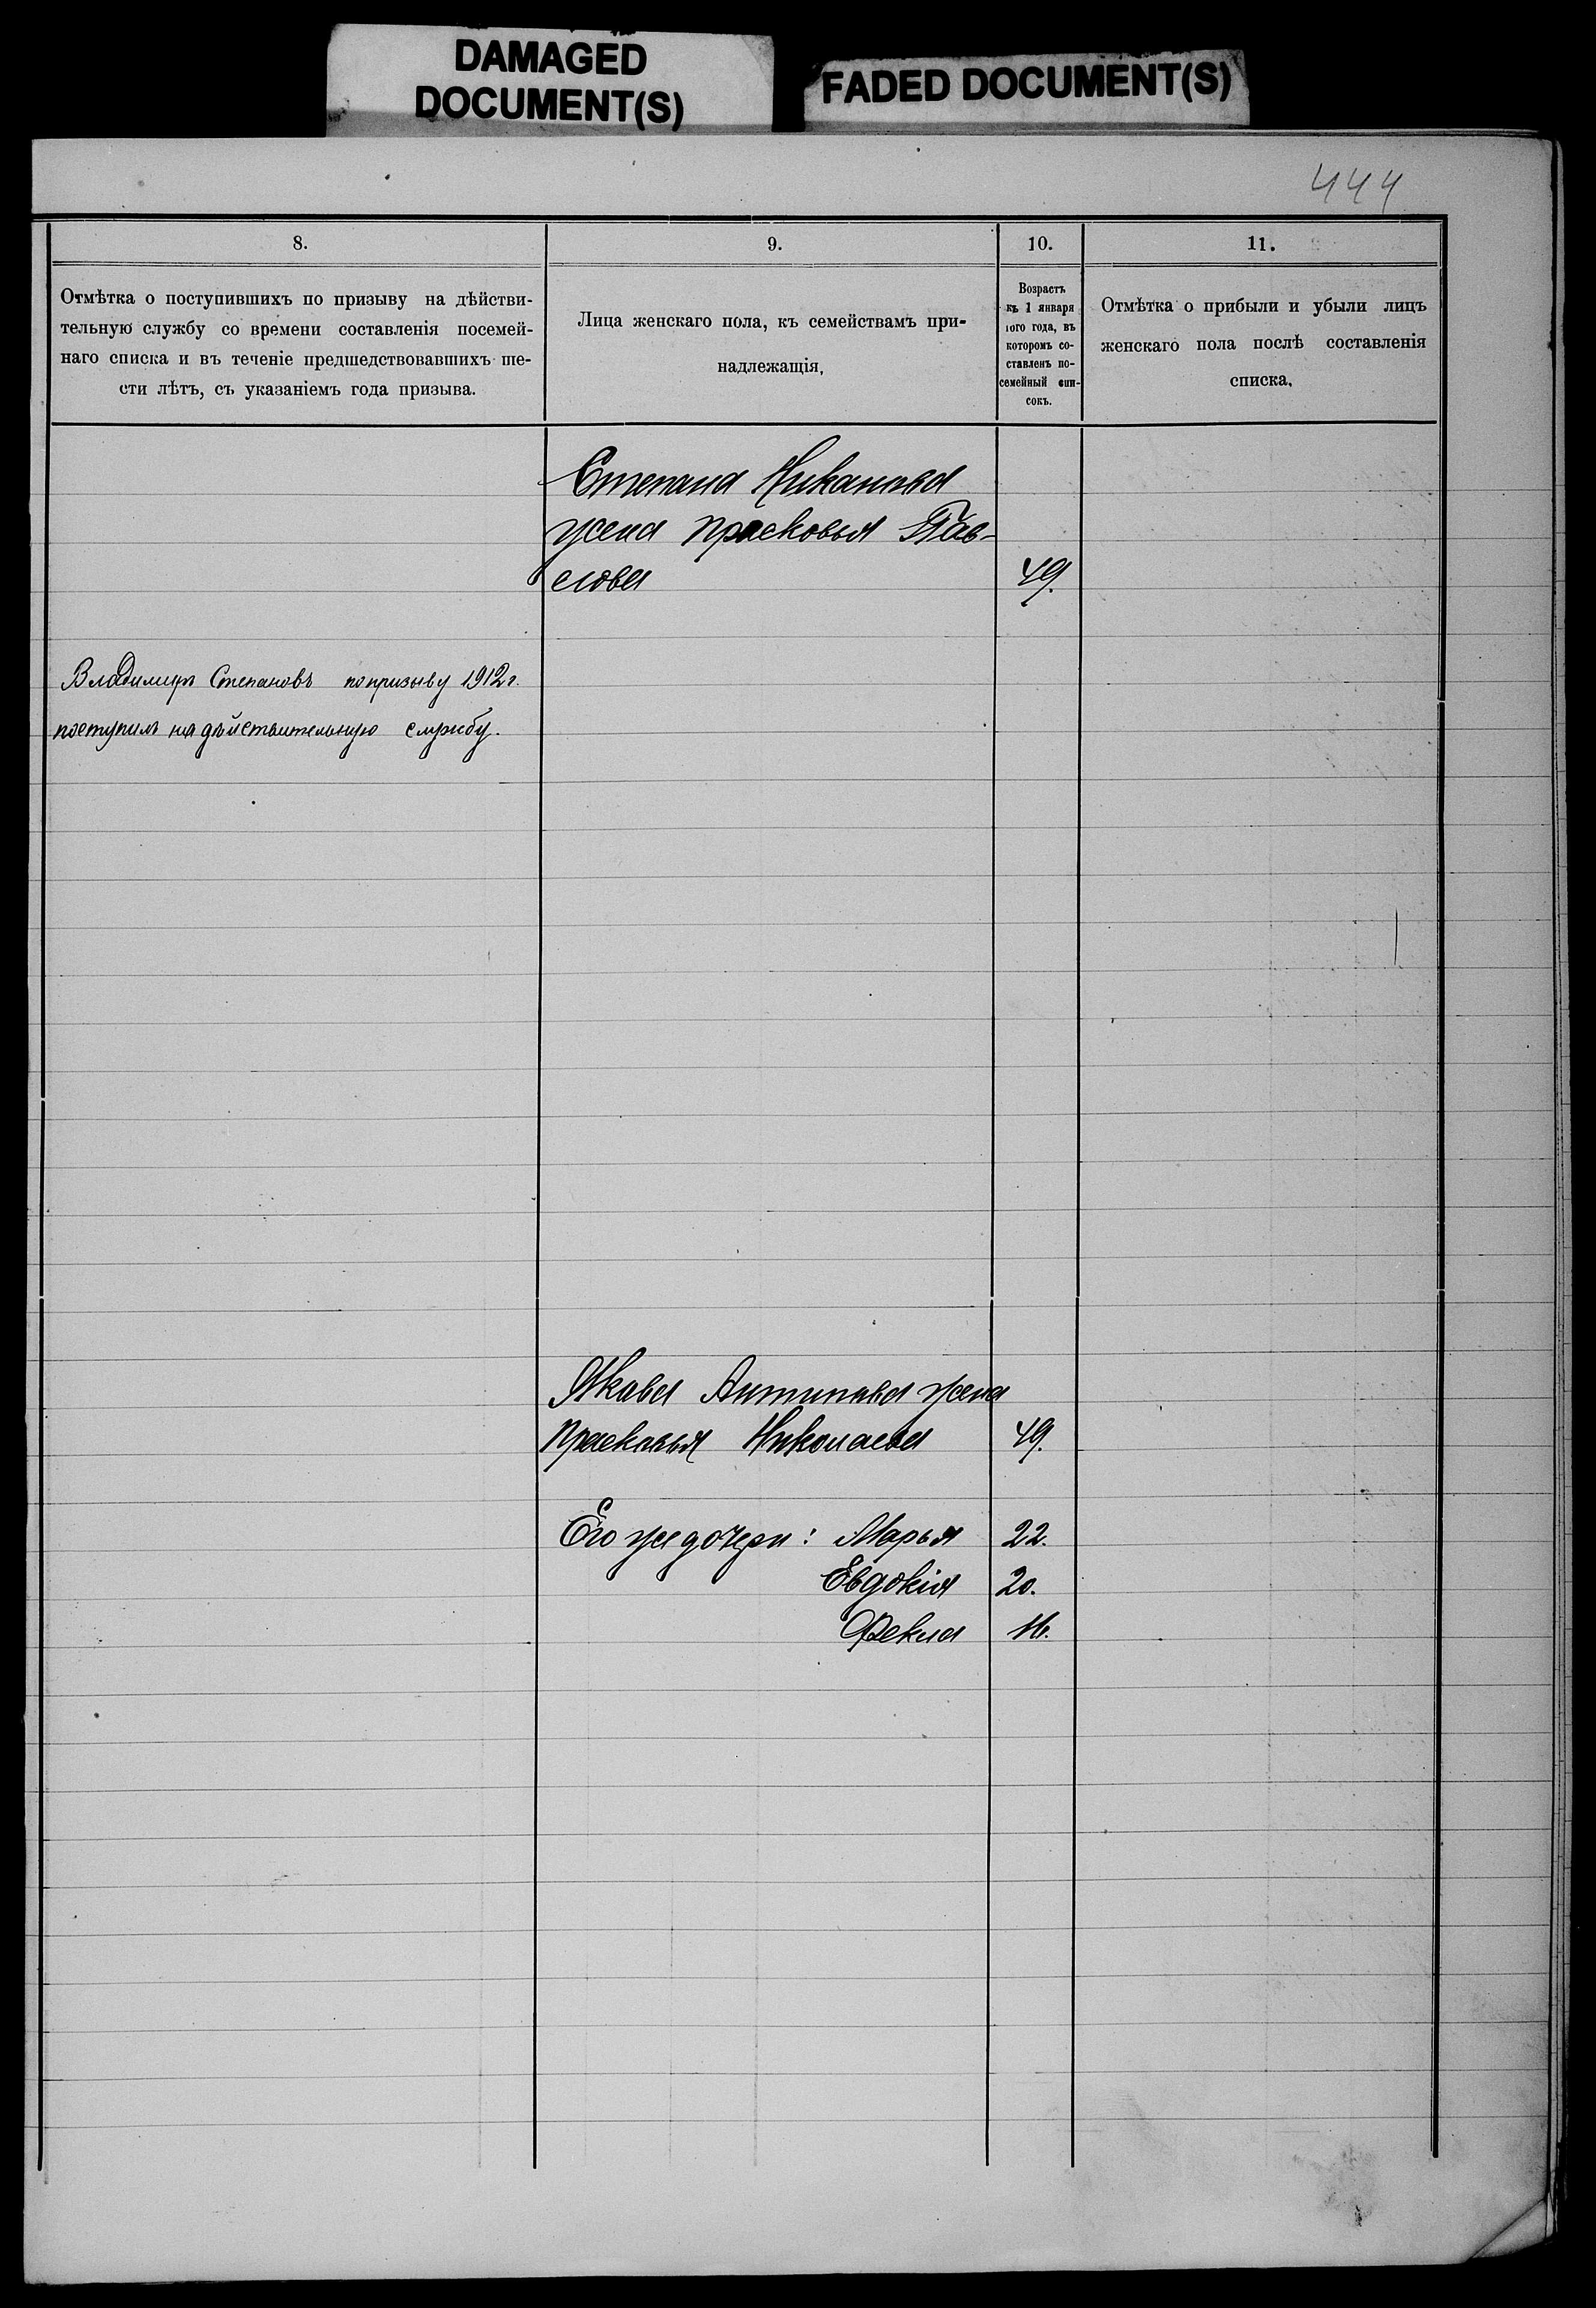 DAMAGED
DOCUMENT(S)
FADED DOCUMENT(S)
444
8.
9.
10.
11.
Отмѣтка о поступившихъ по призыву на дѣйстви-
тельную службу со времени составленія посемей-
наго списка и въ теченіе предшедствовавшихъ ше-
сти лѣтъ, съ указаніемъ года призыва.
Лица женскаго пола, къ семействамъ при-
надлежащія,
Возрастъ
къ 1 января
того года, въ
которомъ со-
ставленъ по-
семейный спи-
сокъ.
Отмѣтка о прибыли и убыли лицъ
женскаго пола послѣ составленія
списка.
Степана Никанова
жена Прасковья Пав-
лова 49.
Владимиръ Степановъ по призыву 1912 г.
поступилъ на дѣйствительную службу.
Якова Антипова жена
Прасковья Николаева 49.
Его же дочери: Марья 22.
Евдокія 20.
Фекла 16.